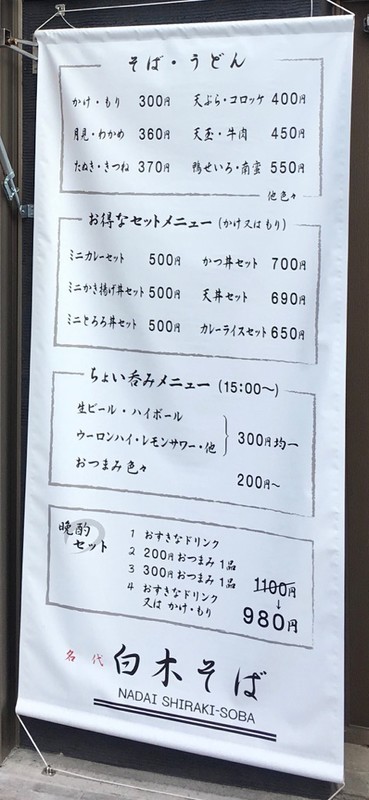 そば・うどん
かけ・もり 300円 天ぷら・コロッケ 400円
月見・わかめ 360円 天玉・牛肉 450円
たぬき・きつね 370円 鴨せいろ・南蛮 550円
他色々
お得なセットメニュー (かけ又はもり)
ミニカレーセット 500円 かつ丼セット 700円
ミニかき揚げ丼セット 500円 天丼セット 690円
ミニとろろ丼セット 500円 カレーライスセット 650円
ちょい呑みメニュー (15:00〜)
生ビール・ハイボール
ウーロンハイ・レモンサワー・他 300円均一
おつまみ色々 200円〜
晩酌セット
1 おすきなドリンク
2 200円おつまみ1品
3 300円おつまみ1品
4 おすきなドリンク
又は かけ・もり
1100円
↓
980円
名代 白木そば
NADAI SHIRAKI-SOBA